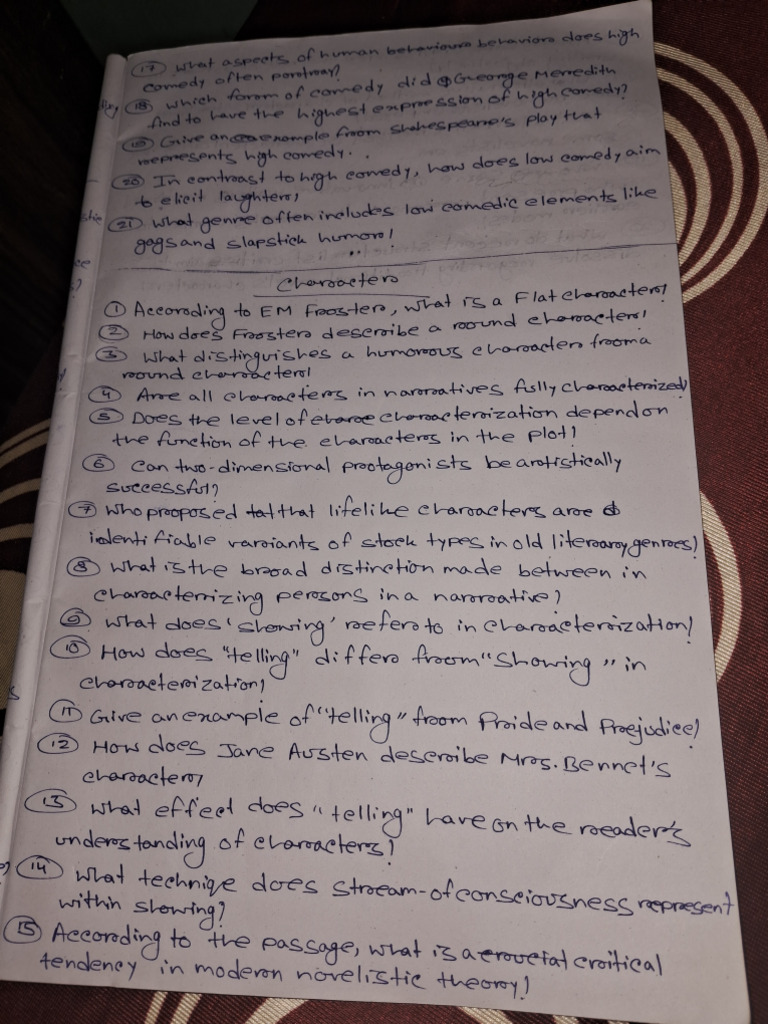 (17) What aspects of human behaviours behaviors does high
comedy often portray?
(18) which form of comedy did George Meredith
find to have the highest expression of high comedy?
(19) Give an example from Shakespeare's play that
represents high comedy.
(20) In contrast to high comedy, how does low comedy aim
to elicit laughter?
(21) What genre often includes low comedic elements like
gags and slapstick humor?
Character
(1) According to EM Froster, what is a Flat character?
(2) How does Froster describe a round character?
(3) What distinguishes a humorous character from a
round character?
(4) Are all characters in narratives fully characterized?
(5) Does the level of charac characterization depend on
the function of the characters in the plot?
(6) Can two-dimensional protagonists be artistically
successful?
(7) Who proposed tat that lifelike characters are
identifiable variants of stock types in old literary genres?
(8) What is the broad distinction made between in
characterizing persons in a narrative?
(9) What does 'showing' refer to in characterization?
(10) How does "telling" differ from "Showing" in
characterization?
(11) Give an example of "telling" from Pride and Prejudice?
(12) How does Jane Austen describe Mrs. Bennet's
character?
(13) What effect does "telling" have on the reader's
understanding of characters?
(14) What techniqe does stream-of consciousness represent
within showing?
(15) According to the passage, what is a crucial critical
tendency in modern novelistic theory?